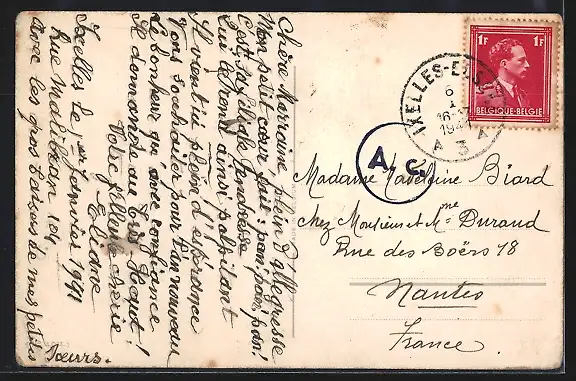 Chère Marraine,
Mon petit cœur plein d'allegresse
fait: pan, pan, pan!
C'est sa filiale tendresse
Qui le rend ainsi palpitant
Il vient ici plein d'espérance
Vous souhaiter pour l'an nouveau
Le bonheur que, avec confiance
Je demande au Très-Haut!
Votre filleule chérie
Eliane
Ixelles Le 1er Janvier 1941
Rue Malibran 104
Avec les gros baisers de mes petites
sœurs.
1F 1F
BELGIQUE-BELGIE
IXELLES-ELSENE
6
1
16-17
1941
A 3 A
A.c.
Madame Madeleine Biard
chez Monsieur et Mme Durand
Rue des Boërs 18
Nantes
France